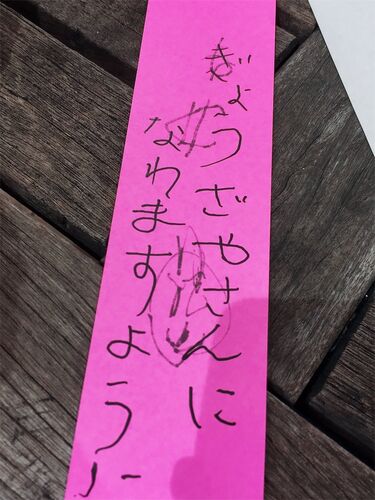 ぎょうざやさんに
なれますように